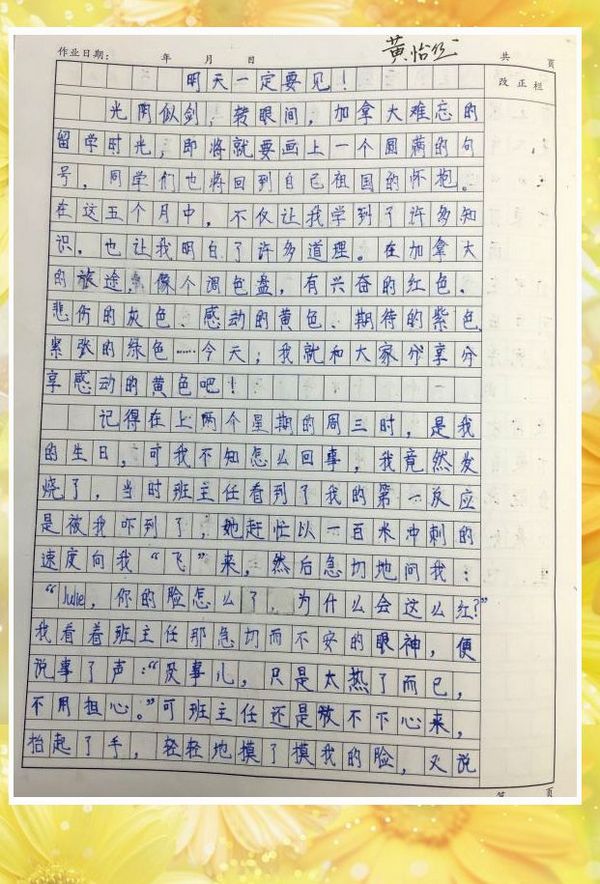 作业日期： 年 月 日
黄怡
共 页
改正栏
明天一定要见！
光阴似剑，转眼间，加拿大难忘的
留学时光，即将就要画上一个圆满的句
号，同学们也将回到自己祖国的怀抱。
在这五个月中，不仅让我学到了许多知
识，也让我明白了许多道理。在加拿大
的旅途，像个调色盘，有兴奋的红色、
悲伤的灰色、感动的黄色、期待的紫色、
紧张的绿色……今天，我就和大家分享分
享感动的黄色吧！
记得在上两个星期的周三时，是我
的生日，可我不知怎么回事，我竟然发
烧了，当时班主任看到了我的第一反应
是被我吓到了，她赶忙以一百米冲刺的
速度向我“飞”来，然后急切地问我：
“Julie，你的脸怎么了，为什么会这么红？”
我看着班主任那急切而不安的眼神，便
说事了声：“没事儿，只是太热了而已，
不用担心。”可班主任还是放不下心来，
抬起了手，轻轻地摸了摸我的脸，又说
第 页